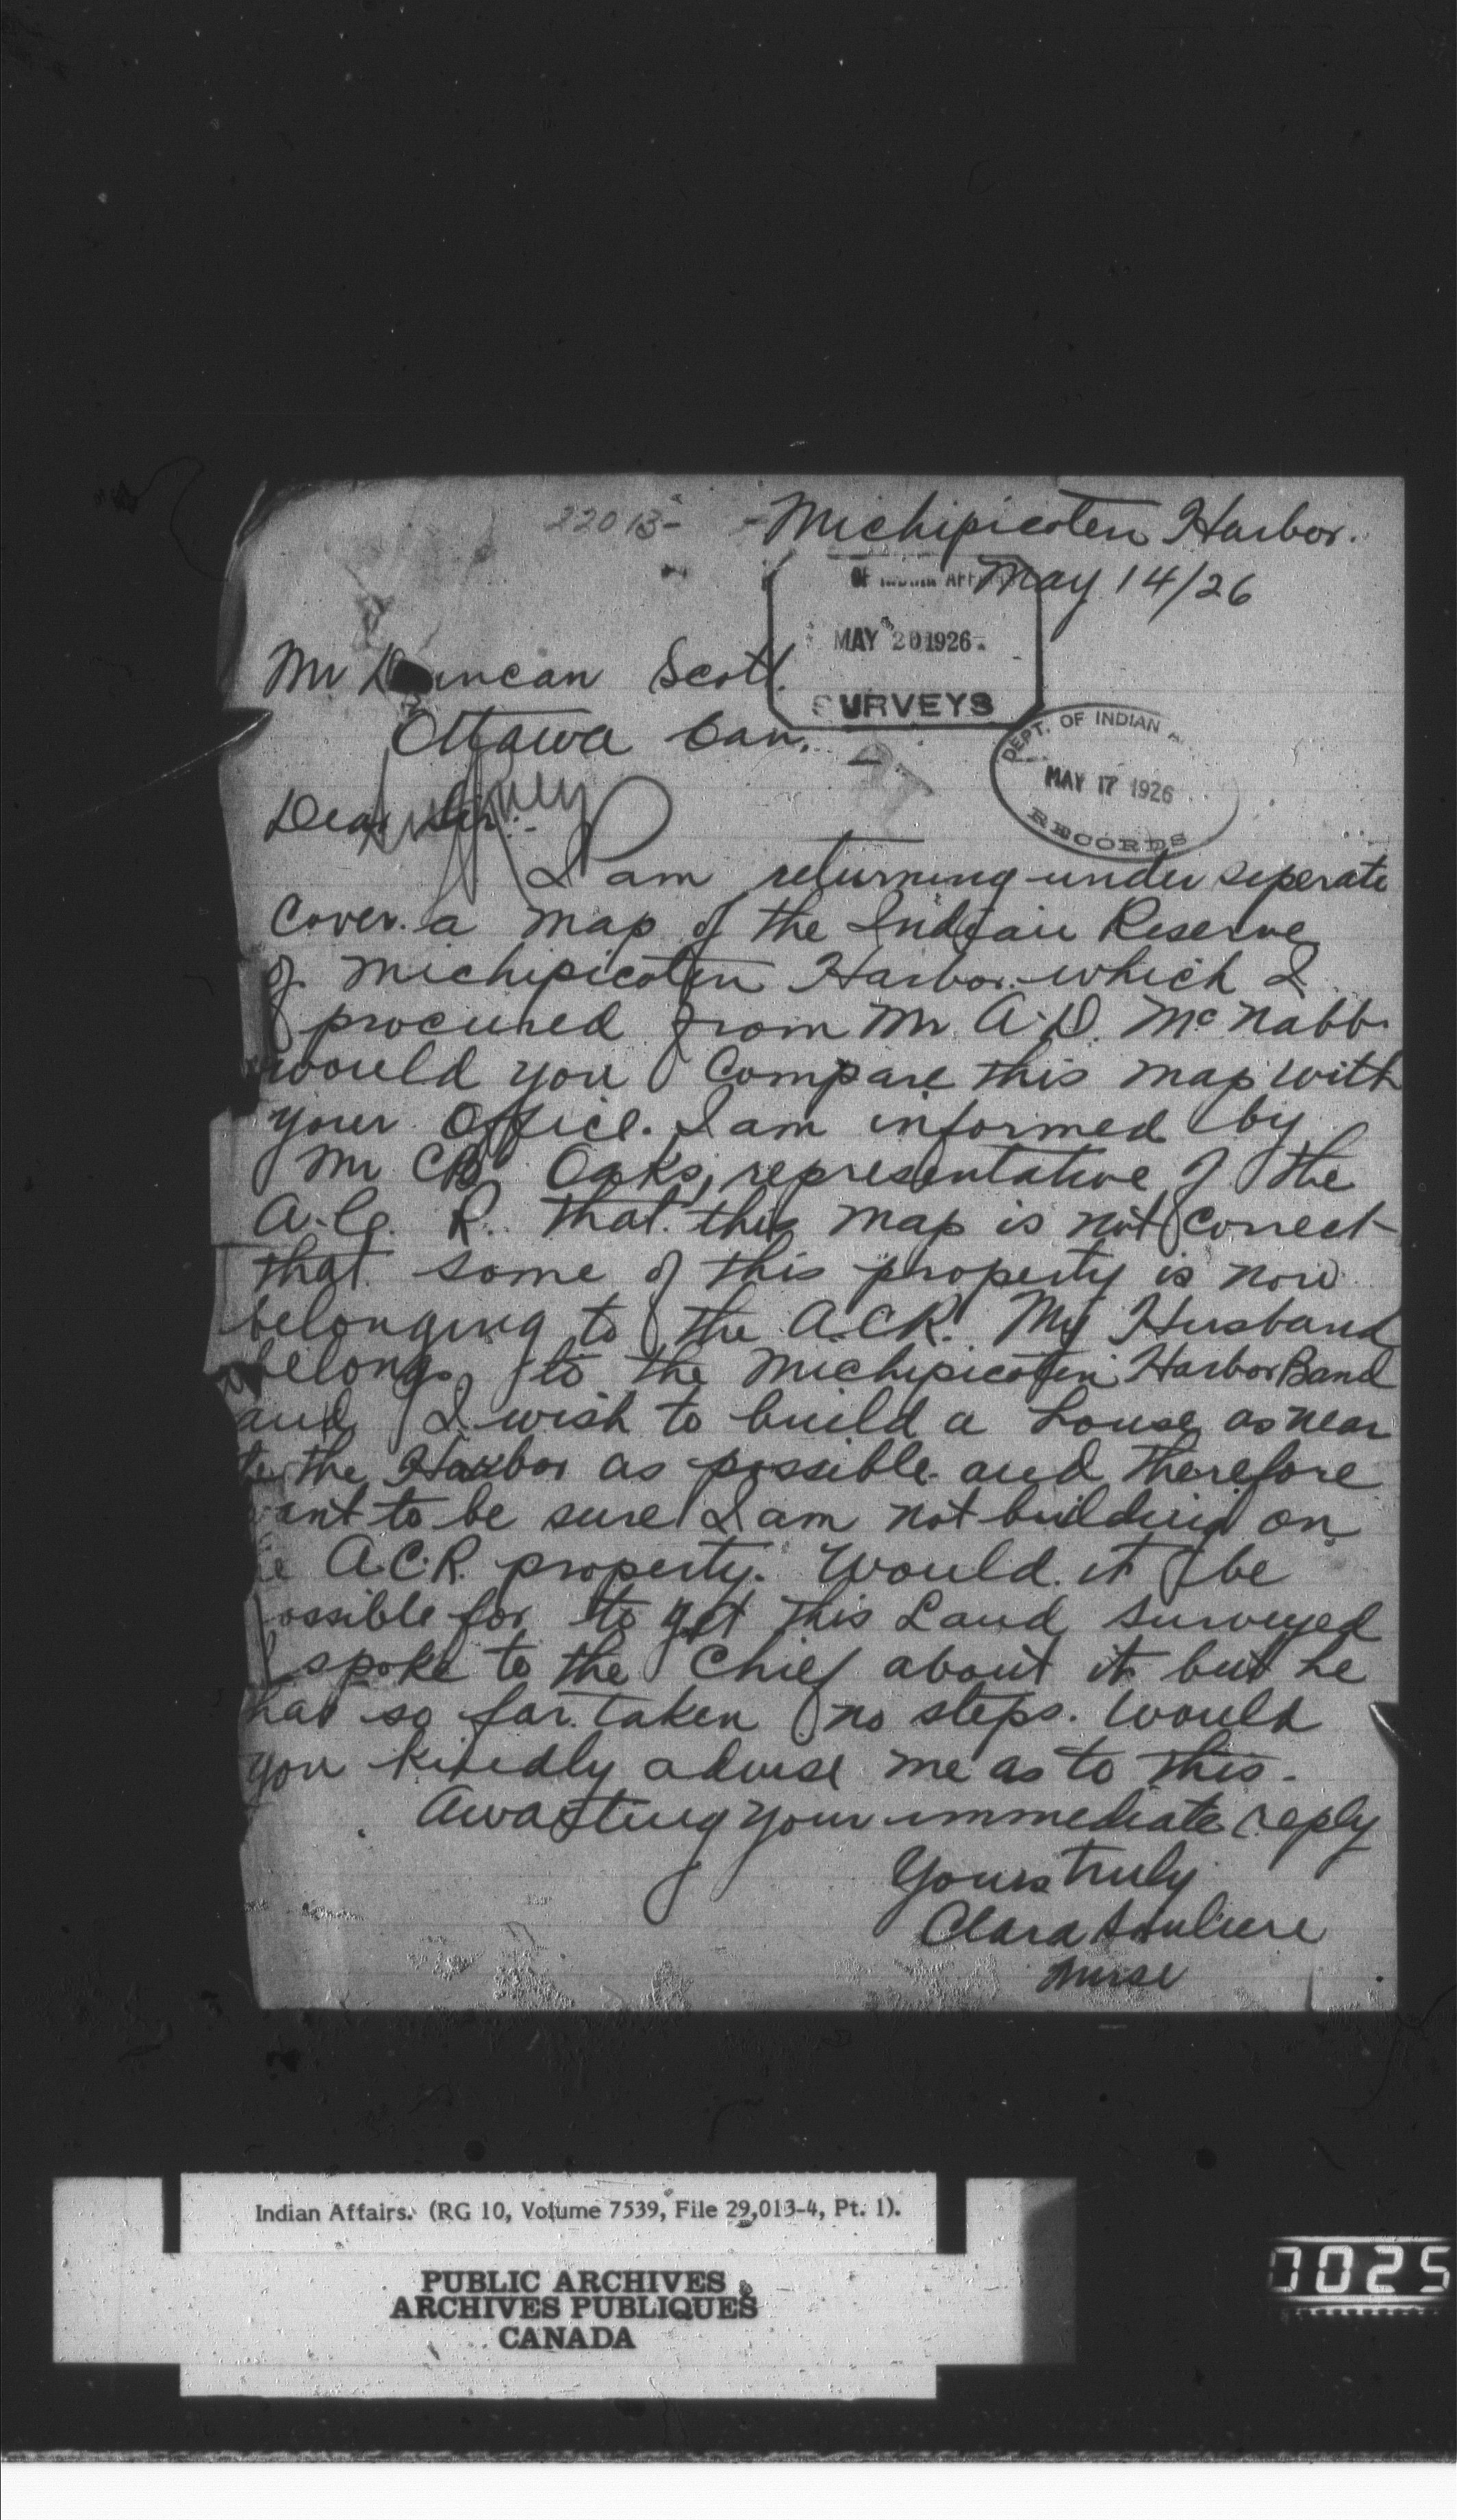 22013-
Michipicoten Harbor.
May 14/26
OF INDIAN AFF
MAY 20 1926
SURVEYS
Mr Duncan Scott.
Ottawa Can.
DEPT. OF INDIAN A
MAY 17 1926
RECORDS
Dear Sir:-
I am returning under seperate
Cover a map of the Indian Reserve
of Michipicoten Harbor which I
procured from Mr A.D. McNabb
would you Compare this map with
your Office. I am informed by
Mr CB Oaks, representative of the
A.C. R. that this map is not correct
that some of this property is now
belonging to the A.C.R. My Husband
belongs to the Michipicoten Harbor Band
and I wish to build a house as near
to the Harbor as possible and therefore
ant to be sure I am not building on
e A.C.R. property. Would it be
ossible for to get this Land surveyed
I spoke to the Chief about it but he
has so far taken no steps. Would
you kindly advise me as to this.
Awaiting your immediate reply
Yours truly
Clara
Nurse
Indian Affairs. (RG 10, Volume 7539, File 29,013-4, Pt. 1).
PUBLIC ARCHIVES
ARCHIVES PUBLIQUES
CANADA
0025